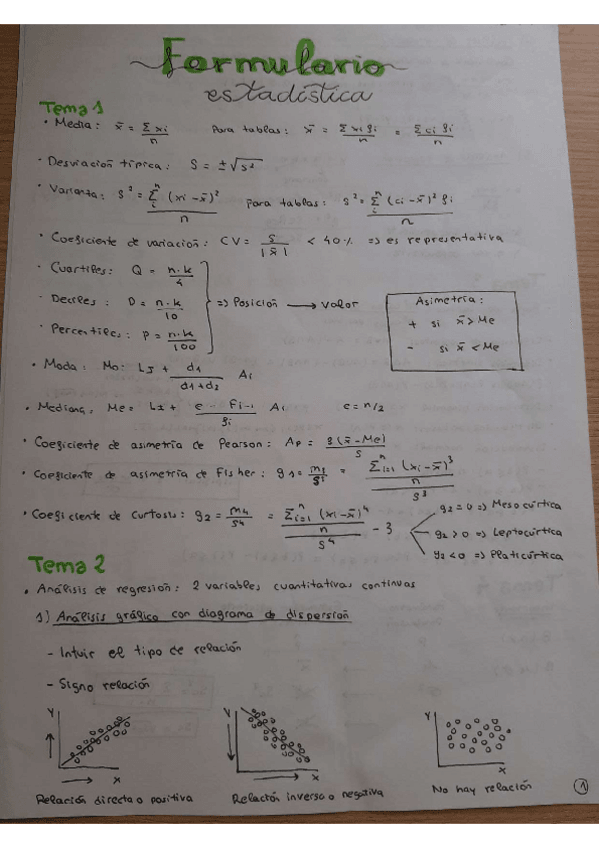 Formulario
estadística
Tema 1
• Media: x̄ = Σxi / n   Para tablas: x̄ = Σxi fi / n = Σci fi / n
- Desviación típica: S = ±√s²
• Varianza: s² = Σᵢⁿ (xi - x̄)² / n   Para tablas: s² = Σᵢⁿ (ci - x̄)² fi / n
• Coeficiente de variación: CV = S / |x̄| < 40% => es representativa
- Cuartiles: Q = n·k / 4
- Deciles: D = n·k / 10   => Posición → valor
• Percentiles: P = n·k / 100
Asimetría:
+ si x̄ > Me
- si x̄ < Me
• Moda: Mo: Li + d1 / d1+d2 Ai
• Mediana: Me = Li + e - Fi-1 / fi Ai   e = n/2
• Coeficiente de asimetría de Pearson: Ap = 3(x̄ - Me) / s
• Coeficiente de asimetría de Fisher: g1 = = Σⁿi=1 (xi - x̄)³ / n / s³
• Coeficiente de curtosis: g2 = m4 / s4 = Σⁿi=1 (xi - x̄)⁴ / n / s⁴ - 3
g2 = 0 => Mesocúrtica
g2 > 0 => Leptocúrtica
g2 < 0 => Platicúrtica
Tema 2
• Análisis de regresión: 2 variables cuantitativas continuas
1) Análisis gráfico con diagrama de dispersión
- Intuir el tipo de relación
- Signo relación
Y   Y   Y
X   X   X
Relación directa o positiva   Relación inversa o negativa   No hay relación
1